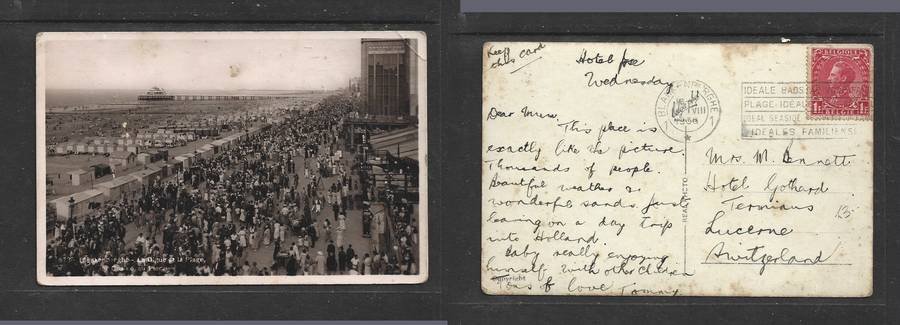 La Digue et la Plage.
Keep
this card
Hotel
Wednesday
Dear Mum,
This place is
exactly like the picture.
Thousands of people.
Beautiful weather &
wonderful sands. Just
leaving on a day trip
into Holland.
Baby really enjoying
himself with other children
Tons of love Tommy
Copyright
REAL PHOTO
BLANKENBERGHE
1
VIII
1936
IDEALE BADS
PLAGE IDEALE
IDEAL SEASIDE
IDEALES FAMILIENS
BELGIQUE
1F
1F
BELGIE
Mrs. M. Bennett
Hotel Gothard
Terminus
Lucerne
Switzerland